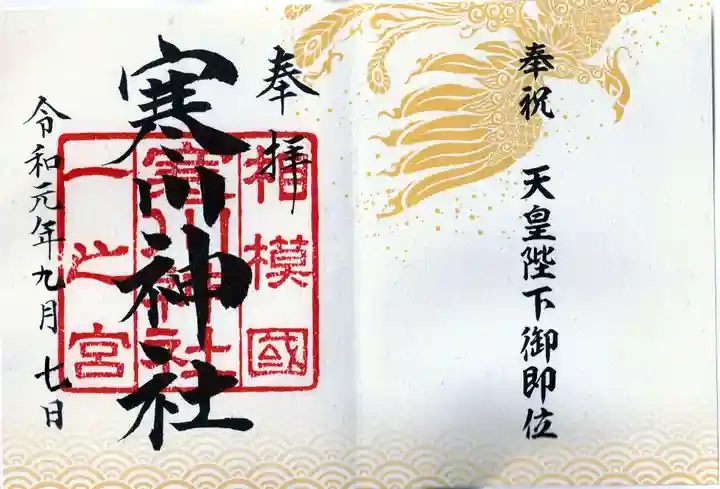 奉祝 天皇陛下御即位
奉拝
寒川神社
相模國
寒川神社
一之宮
令和元年九月七日